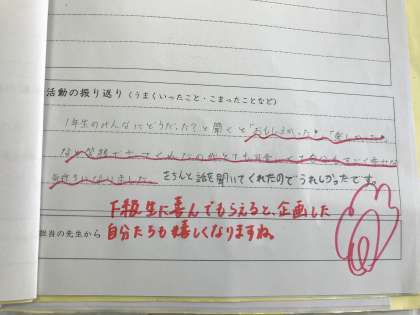 活動の振り返り（うまくいったこと・こまったことなど）
1年生のみんなにどうだった？と聞くと「おもしろかった」「楽しかった」
など笑顔で言ってくれた
気持ちになりました。きちんと話を聞いてくれたのでうれしかったです。
下級生に喜んでもらえると、企画した
担当の先生から 自分たちも嬉しくなりますね。